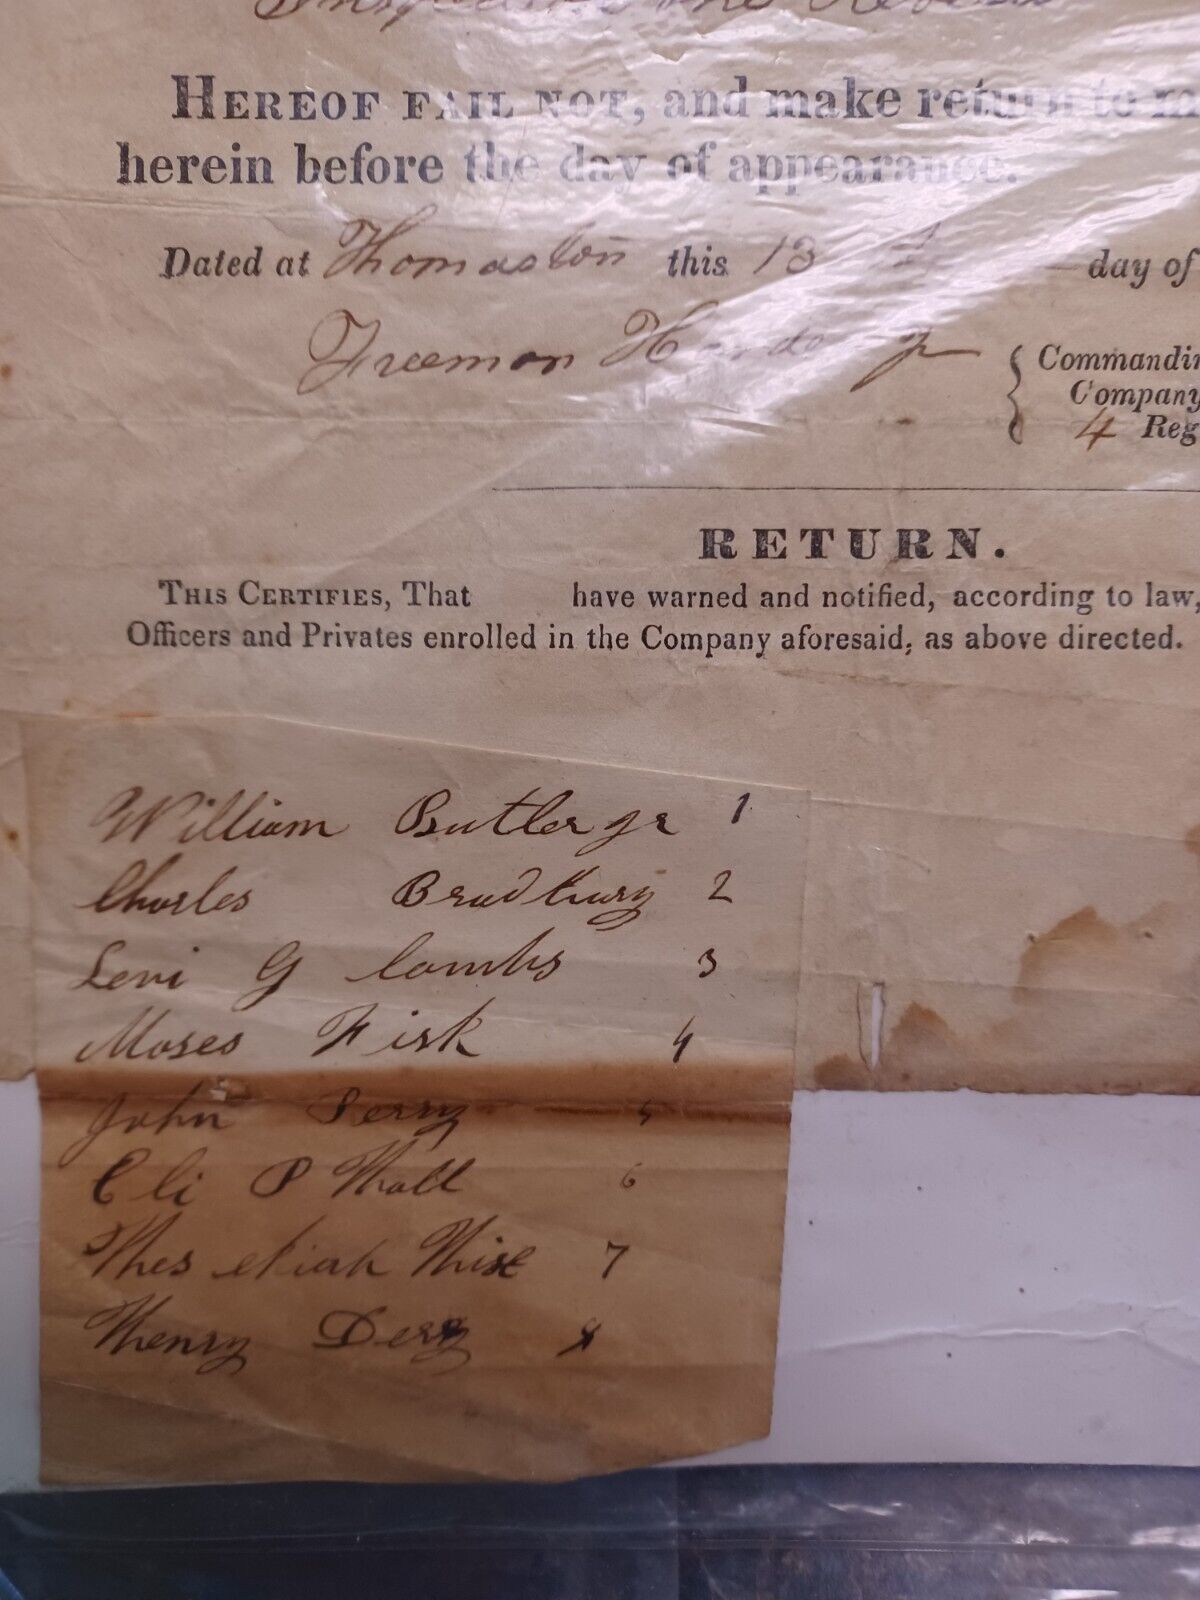 HEREOF FAIL NOT, and make return to m
herein before the day of appearance.
Dated at Thomaston this 13 day of
Freeman
Commandin
Company
4 Reg
RETURN.
THIS CERTIFIES, That have warned and notified, according to law,
Officers and Privates enrolled in the Company aforesaid, as above directed.
William Butler Jr 1
Charles Bradbury 2
Levi G Combs 3
Moses Fisk 4
John Perry 5
Eli P Hall 6
7
Henry 8